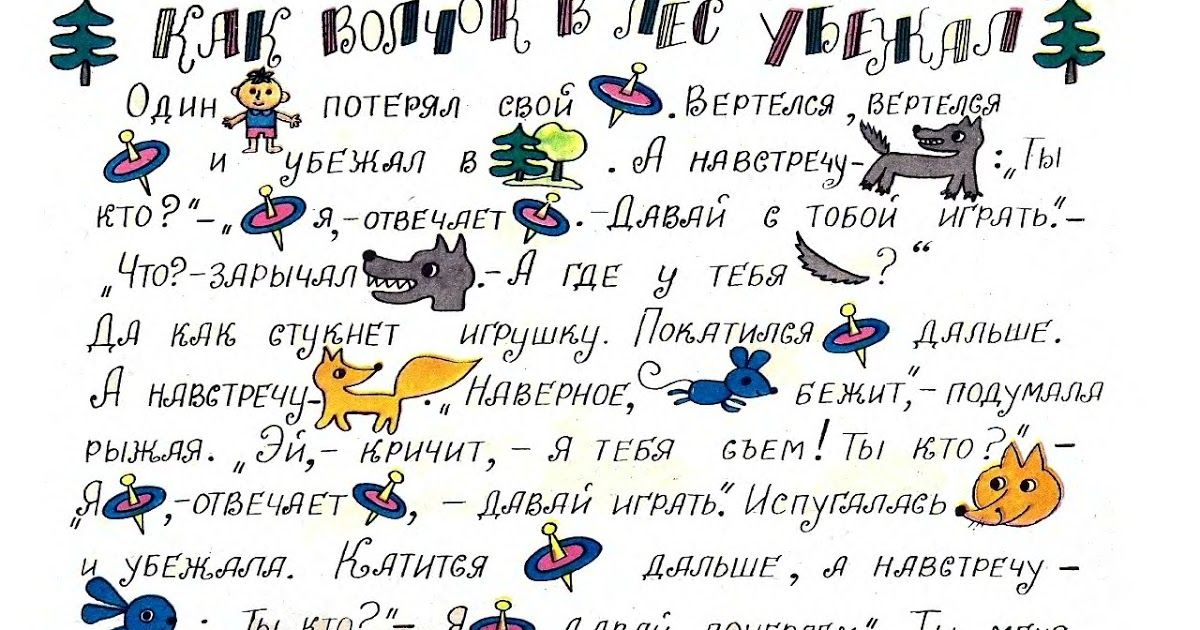 КАК ВОЛЧОК В ЛЕС УБЕЖАЛ
Один потерял свой . Вертелся, вертелся
и убежал в . А навстречу- : „Ты
кто?“ – „ я, – отвечает . – Давай с тобой играть.“ –
„Что? – зарычал . – А где у тебя ?“
Да как стукнет игрушку. Покатился дальше.
А навстречу- . „Наверное, бежит“, – подумала
рыжая. „Эй, – кричит, – я тебя съем! Ты кто?“ –
„Я , – отвечает , – давай играть.“ Испугалась
и убежала. Катится дальше, а навстречу –
: Ты кто?“ – Я давай Ты меня